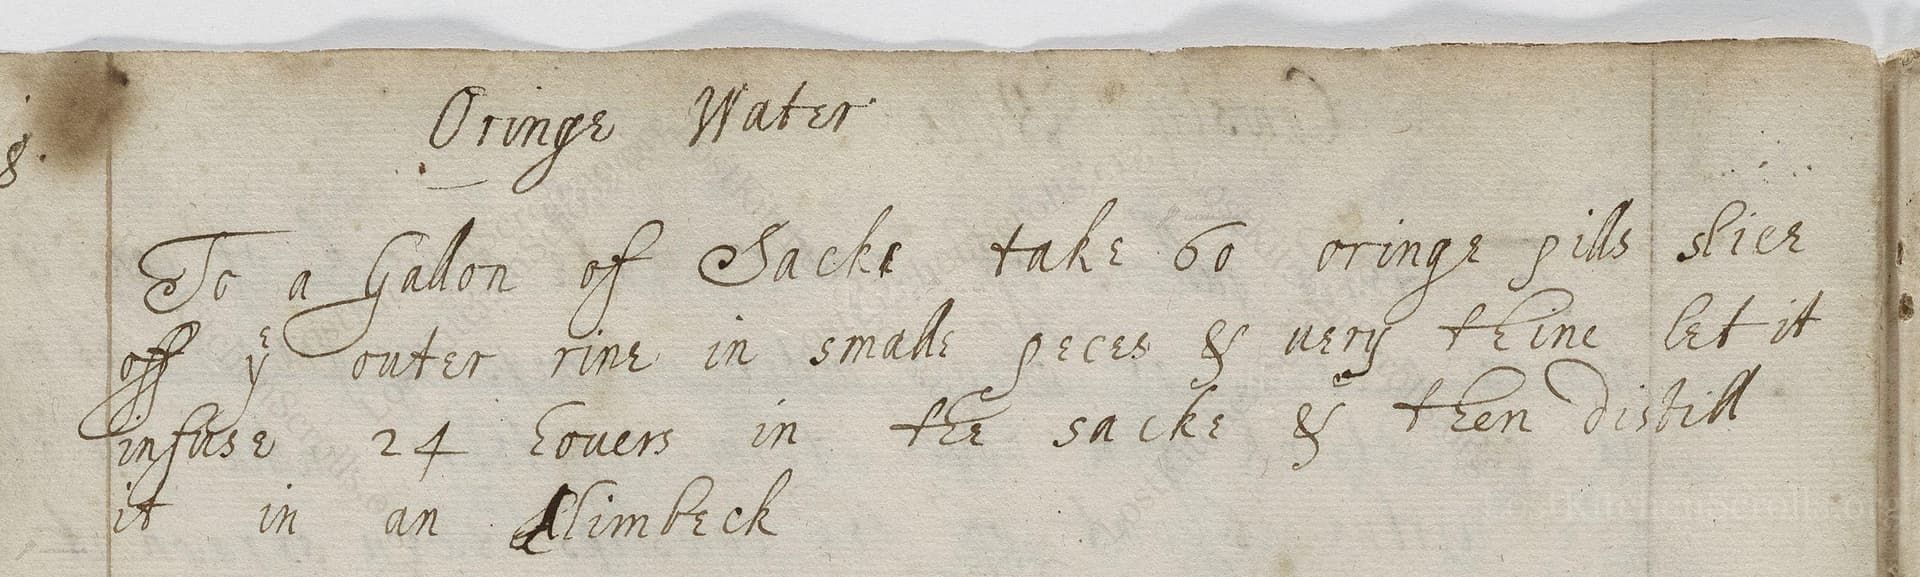 8.
Oringe Water
To a Gallon of Sacke take 60 oringe pills slice
off yᵉ outer rine in smalle peces & uery thine let it
infuse 24 houers in the sacke & then distill
it in an Alimbeck
LostKitchenScrolls.org